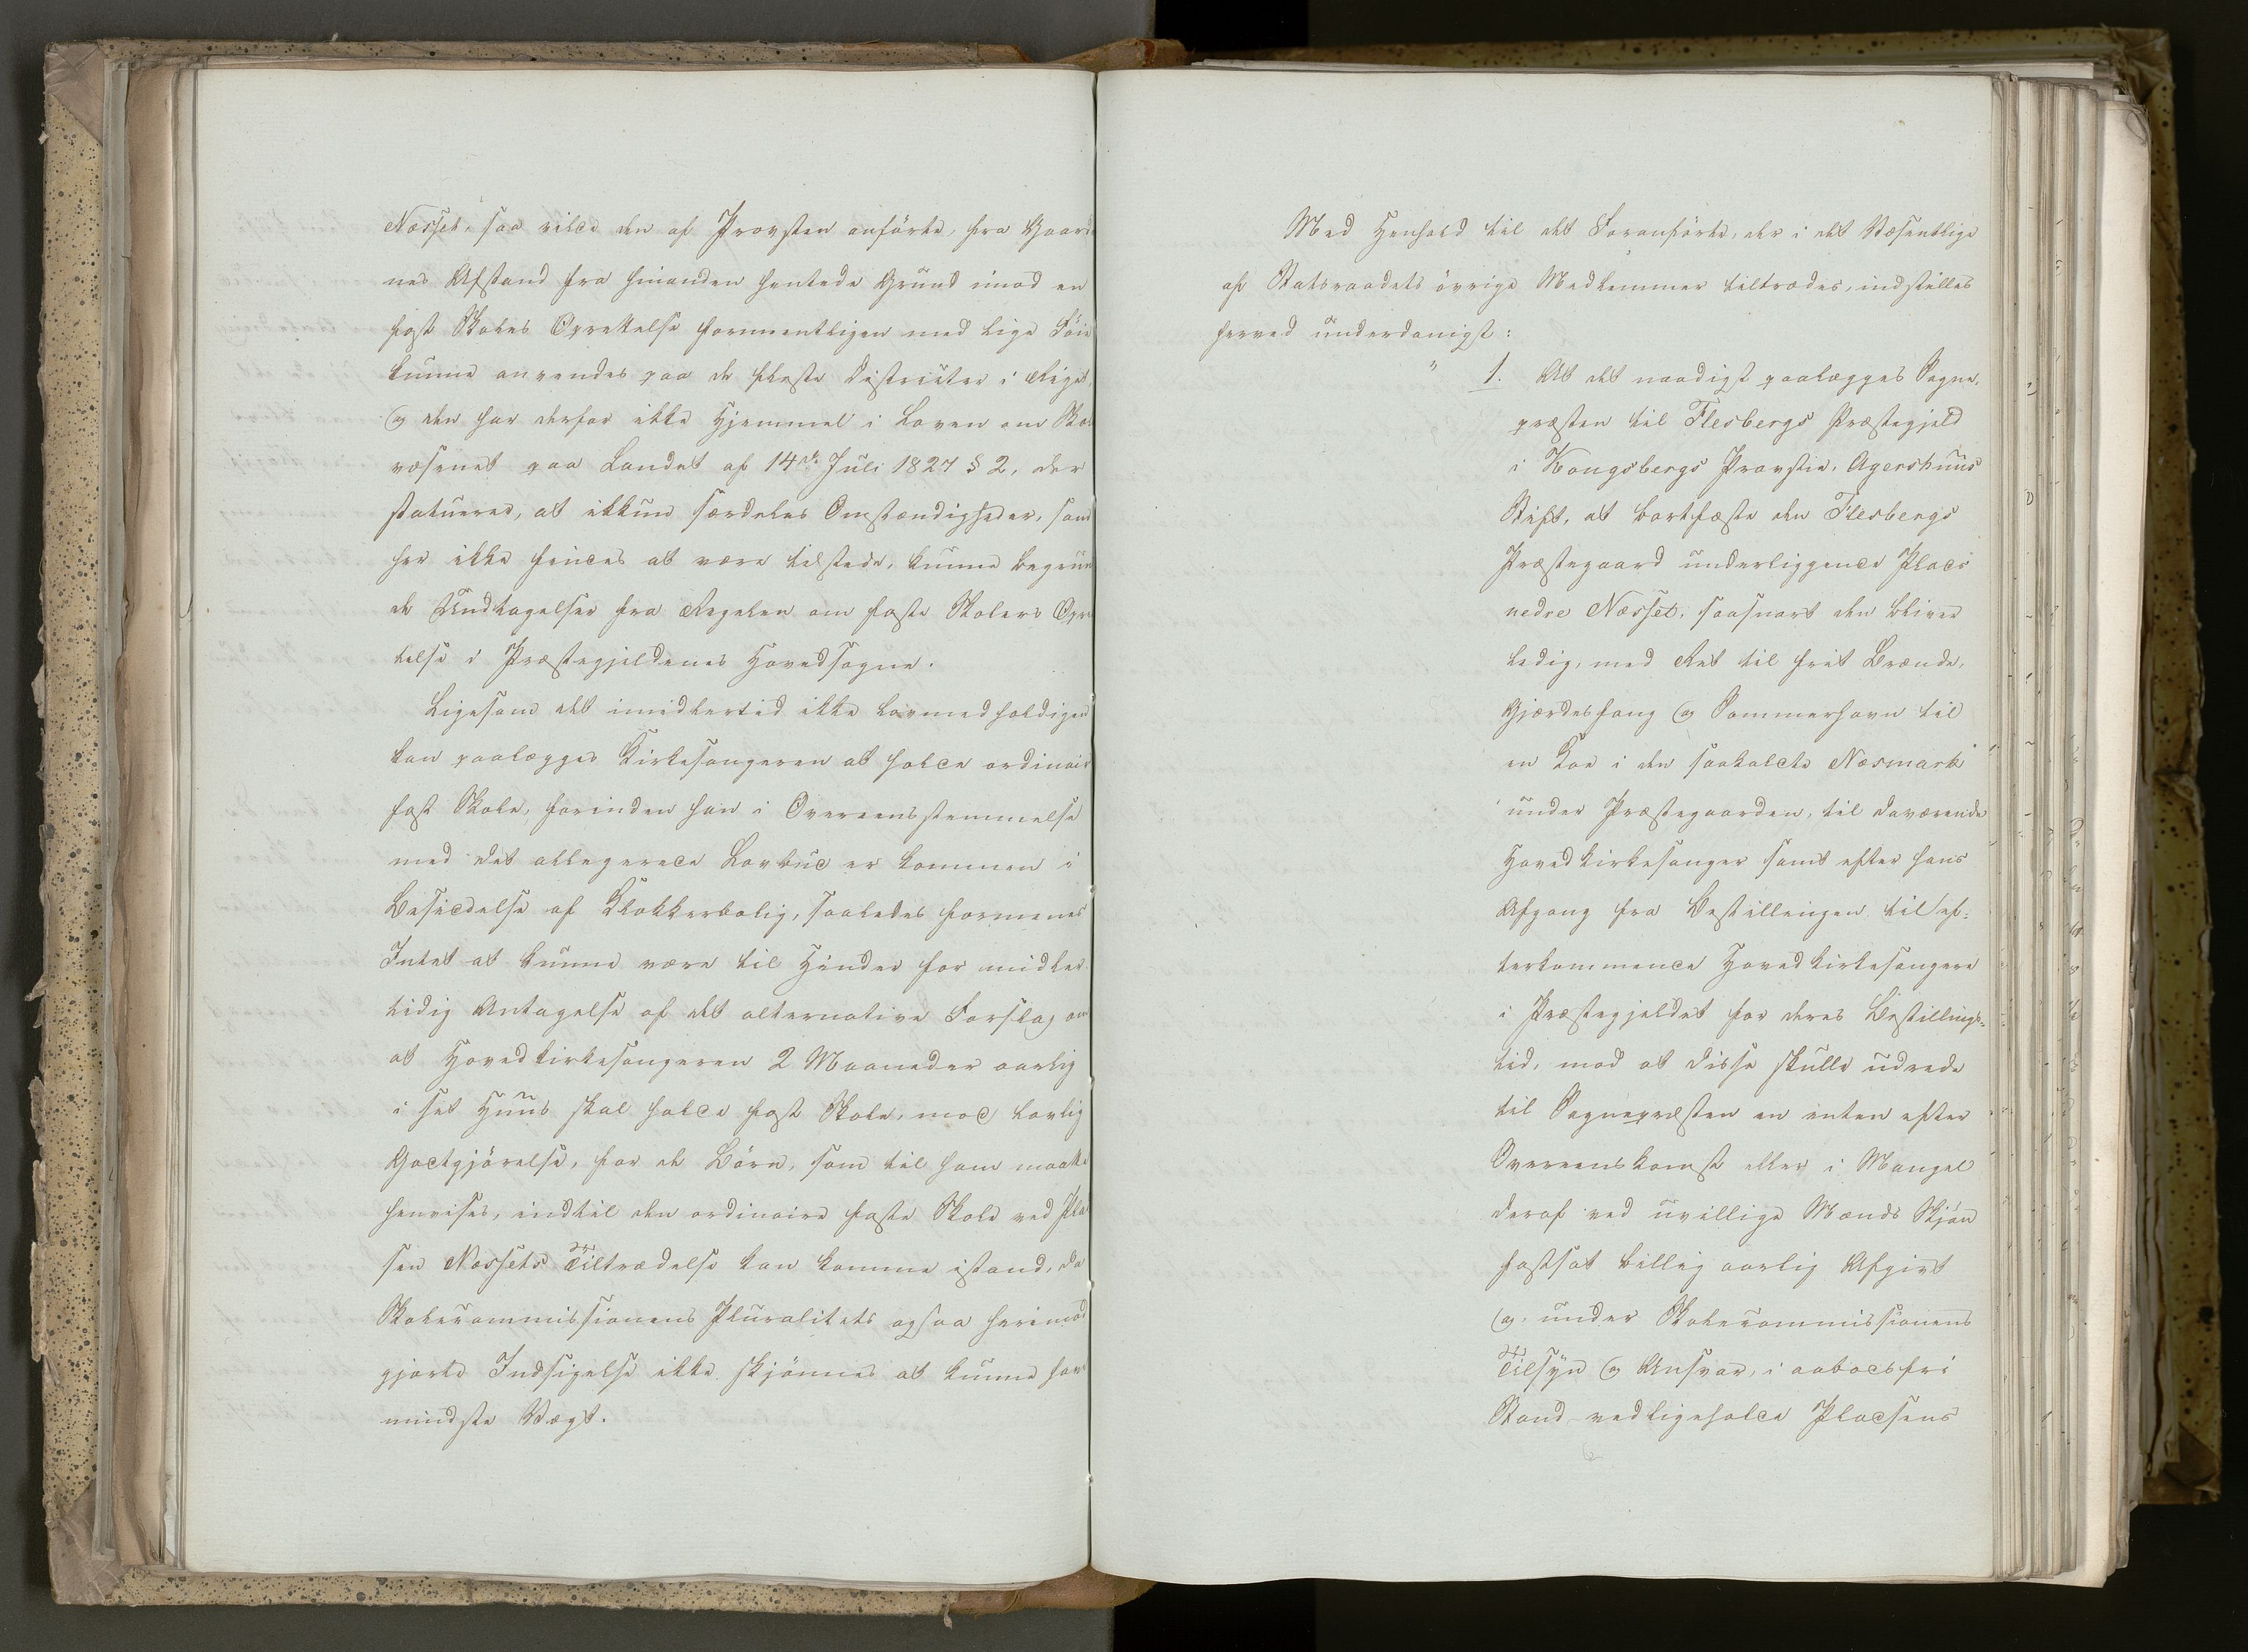 Næsset, saa vilde den af Provsten anførte, fra Gaard
nes Afstand fra hinanden hentede Grund imod en
fast Skoles Oprettelse formentligen med lige Føie
kunne anvendes paa de fleste Districter i Riget,
og den har derfor ikke Hjemmel i Loven om Skol
væsenet paa Landet af 14de Juli 1827 § 2, der
statuerer, at ikkun særdeles Omstændigheder, som
her ikke findes at være tilstede, kunne begrun
de Undtagelser fra Regelen om faste Skolers Opre
telse i Præstegjeldenes Hovedsogne.
Ligesom det imidlertid ikke lovmedholdigen
kan paalægges Kirkesangeren at holde ordinair
fast Skole, forinden han i Overeensstemmelse
med det allegerede Lovbud er kommen i
Besiddelse af Klokkerbolig, saaledes formenes
Intet at kunne være til Hinder for midler
tidig Antagelse af det alternative Forslag om
at Hovedkirkesangeren 2 Maaneder aarlig
i sit Huus skal holde fast Skole, mod lovlig
Godtgjørelse, for de Børn, som til ham maatte
henvises, indtil den ordinaire faste Skole ved Pla
sen Næssets Tiltrædelse kan komme istand, da
Skolecommissionens Pluralitets ogsaa herimod
gjorte Indsigelse ikke skjønnes at kunne have
mindste Vægt.
Med Henhold til det Foranførte, der i det Væsentlige
af Statsraadets øvrige Medlemmer tiltrædes, indstilles
herved underdanigst:
" 1. At det naadigst paalægges Sogne-
præsten til Flesbergs Præstegjeld
i Kongsbergs Provstie, Agershuus
Stift, at bortfæste den Flesbergs
Præstegaard underliggende Plads
nedre Næsset, saasnart den bliver
ledig, med Ret til frit Brænde,
Gjærdesfang og Sommerhavn til
en Koe i den saakaldte Næsmark
under Præstegaarden, til daværende
Hovedkirkesanger samt efter hans
Afgang fra Bestillingen til ef-
terkommende Hovedkirkesangere
i Præstegjeldet for deres Bestillings-
tid, mod at disse skulle udrede
til Sognepræsten en enten efter
Overeenskomst eller i Mangel
deraf ved uvillige Mænds Skjøn
fastsat billig aarlig Afgivt
og under Skolecommissionens
Tilsyn og Ansvar, i aabodsfri
Stand vedligeholde Pladsens